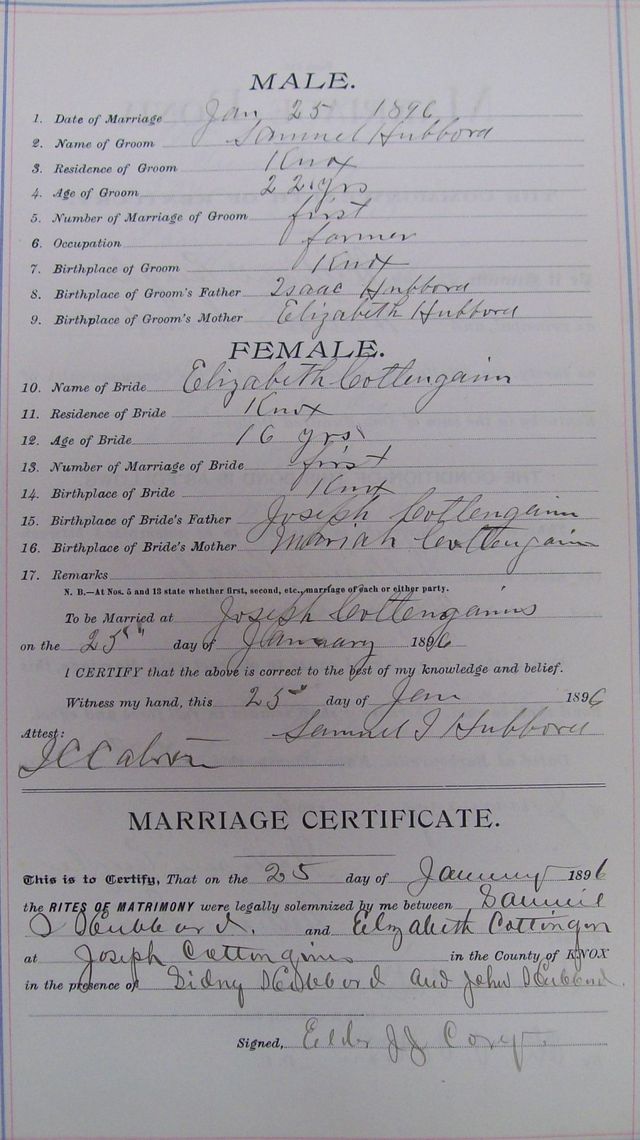 MALE.
1. Date of Marriage Jan 25 1896
2. Name of Groom Samuel Hubbord
3. Residence of Groom Knox
4. Age of Groom 22 yrs
5. Number of Marriage of Groom first
6. Occupation farmer
7. Birthplace of Groom Knox
8. Birthplace of Groom's Father Isaac Hubbord
9. Birthplace of Groom's Mother Elizabeth Hubbord
FEMALE.
10. Name of Bride Elizabeth Cottengaim
11. Residence of Bride Knox
12. Age of Bride 16 yrs
13. Number of Marriage of Bride first
14. Birthplace of Bride Knox
15. Birthplace of Bride's Father Joseph Cottengaim
16. Birthplace of Bride's Mother Mariah Cottengaim
17. Remarks
N. B.—At Nos. 5 and 13 state whether first, second, etc., marriage of each or either party.
To be Married at Joseph Cottengaims
on the 25" day of January 1896
I CERTIFY that the above is correct to the best of my knowledge and belief.
Witness my hand, this 25" day of Jan 1896
Attest: Samuel I Hubbord
J C C
MARRIAGE CERTIFICATE.
This is to Certify, That on the 25 day of January 1896
the RITES OF MATRIMONY were legally solemnized by me between Samuel
I Hubbord. and Elizabeth Cottingin
at Joseph Cottingins in the County of KNOX
in the presence of Sidny Hubbord and John Hubbord.
Signed, Elder J J